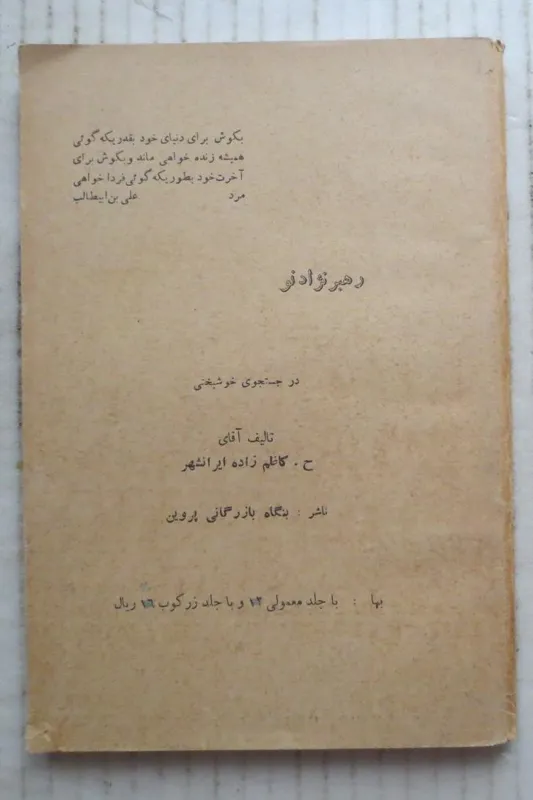 بکوش برای دنیای خود بقدریکه گوئی
همیشه زنده خواهی ماند و بکوش برای
آخرت خود بطوریکه گوئی فردا خواهی
مرد علی بن ابیطالب
رهبر نژاد نو
در جستجوی خوشبختی
تالیف آقای
ح . کاظم زاده ایرانشهر
ناشر : بنگاه بازرگانی پروین
بها : با جلد معمولی ۱۲ و با جلد زرکوب ۱۶ ریال